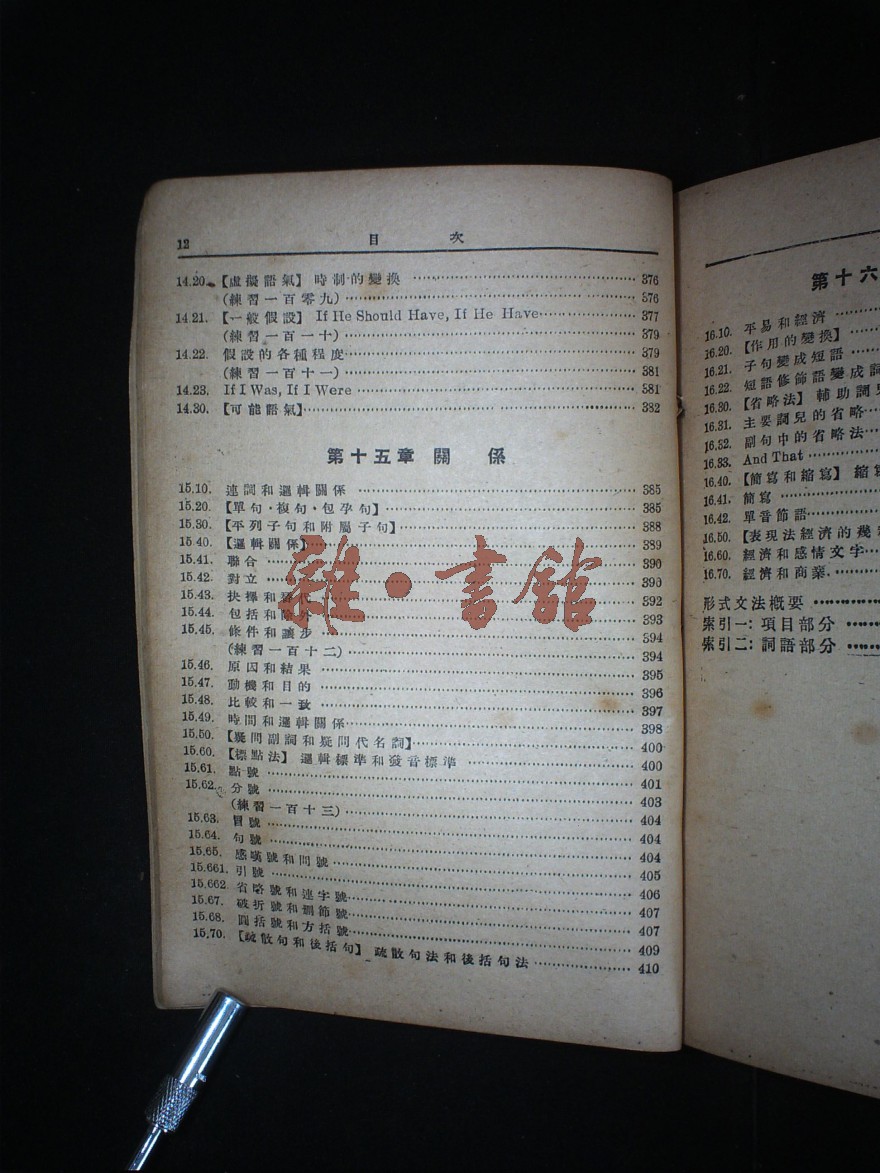 12 目 次
14.20. 【虛擬語氣】 時制的變換 376
(練習一百零九) 376
14.21. 【一般假設】 If He Should Have, If He Have 377
(練習一百一十) 379
14.22. 假設的各種程度 379
(練習一百十一) 381
14.23. If I Was, If I Were 381
14.30. 【可能語氣】 382
第十五章 關 係
15.10. 連詞和邏輯關係 385
15.20. 【單句·複句·包孕句】 385
15.30. 【平列子句和附屬子句】 388
15.40. 【邏輯關係】 389
15.41. 聯合 390
15.42. 對立 390
15.43. 抉擇和替代 392
15.44. 包括和除外 393
15.45. 條件和讓步 394
(練習一百十二) 394
15.46. 原因和結果 395
15.47. 動機和目的 396
15.48. 比較和一致 397
15.49. 時間和邏輯關係 398
15.50. 【疑問副詞和疑問代名詞】 400
15.60. 【標點法】 邏輯標準和發音標準 400
15.61. 點號 401
15.62. 分號 403
(練習一百十三) 404
15.63. 冒號 404
15.64. 句號 404
15.65. 感嘆號和問號 405
15.661. 引號 406
15.662 省略號和連字號 407
15.67. 破折號和 號 407
15.68. 圓括號和方括號 409
15.70. 【疏散句和後括句】 疏散句法和後括句法 410
雜·書館
第十六
16.10. 平易和經濟
16.20. 【作用的變換】
16.21. 子句變成短語
16.22. 短語修飾語變成詞
16.30. 【省略法】 輔助詞兒
16.31. 主要詞兒的省略
16.32. 副句中的省略
16.33. And That
16.40. 【簡寫和縮寫】 縮寫
16.41. 簡寫
16.42. 單音節語
16.50. 【表現法經濟的幾
16.60. 經濟和感情文字
16.70. 經濟和商業
形式文法概要
索引一: 項目部分
索引二: 詞語部分